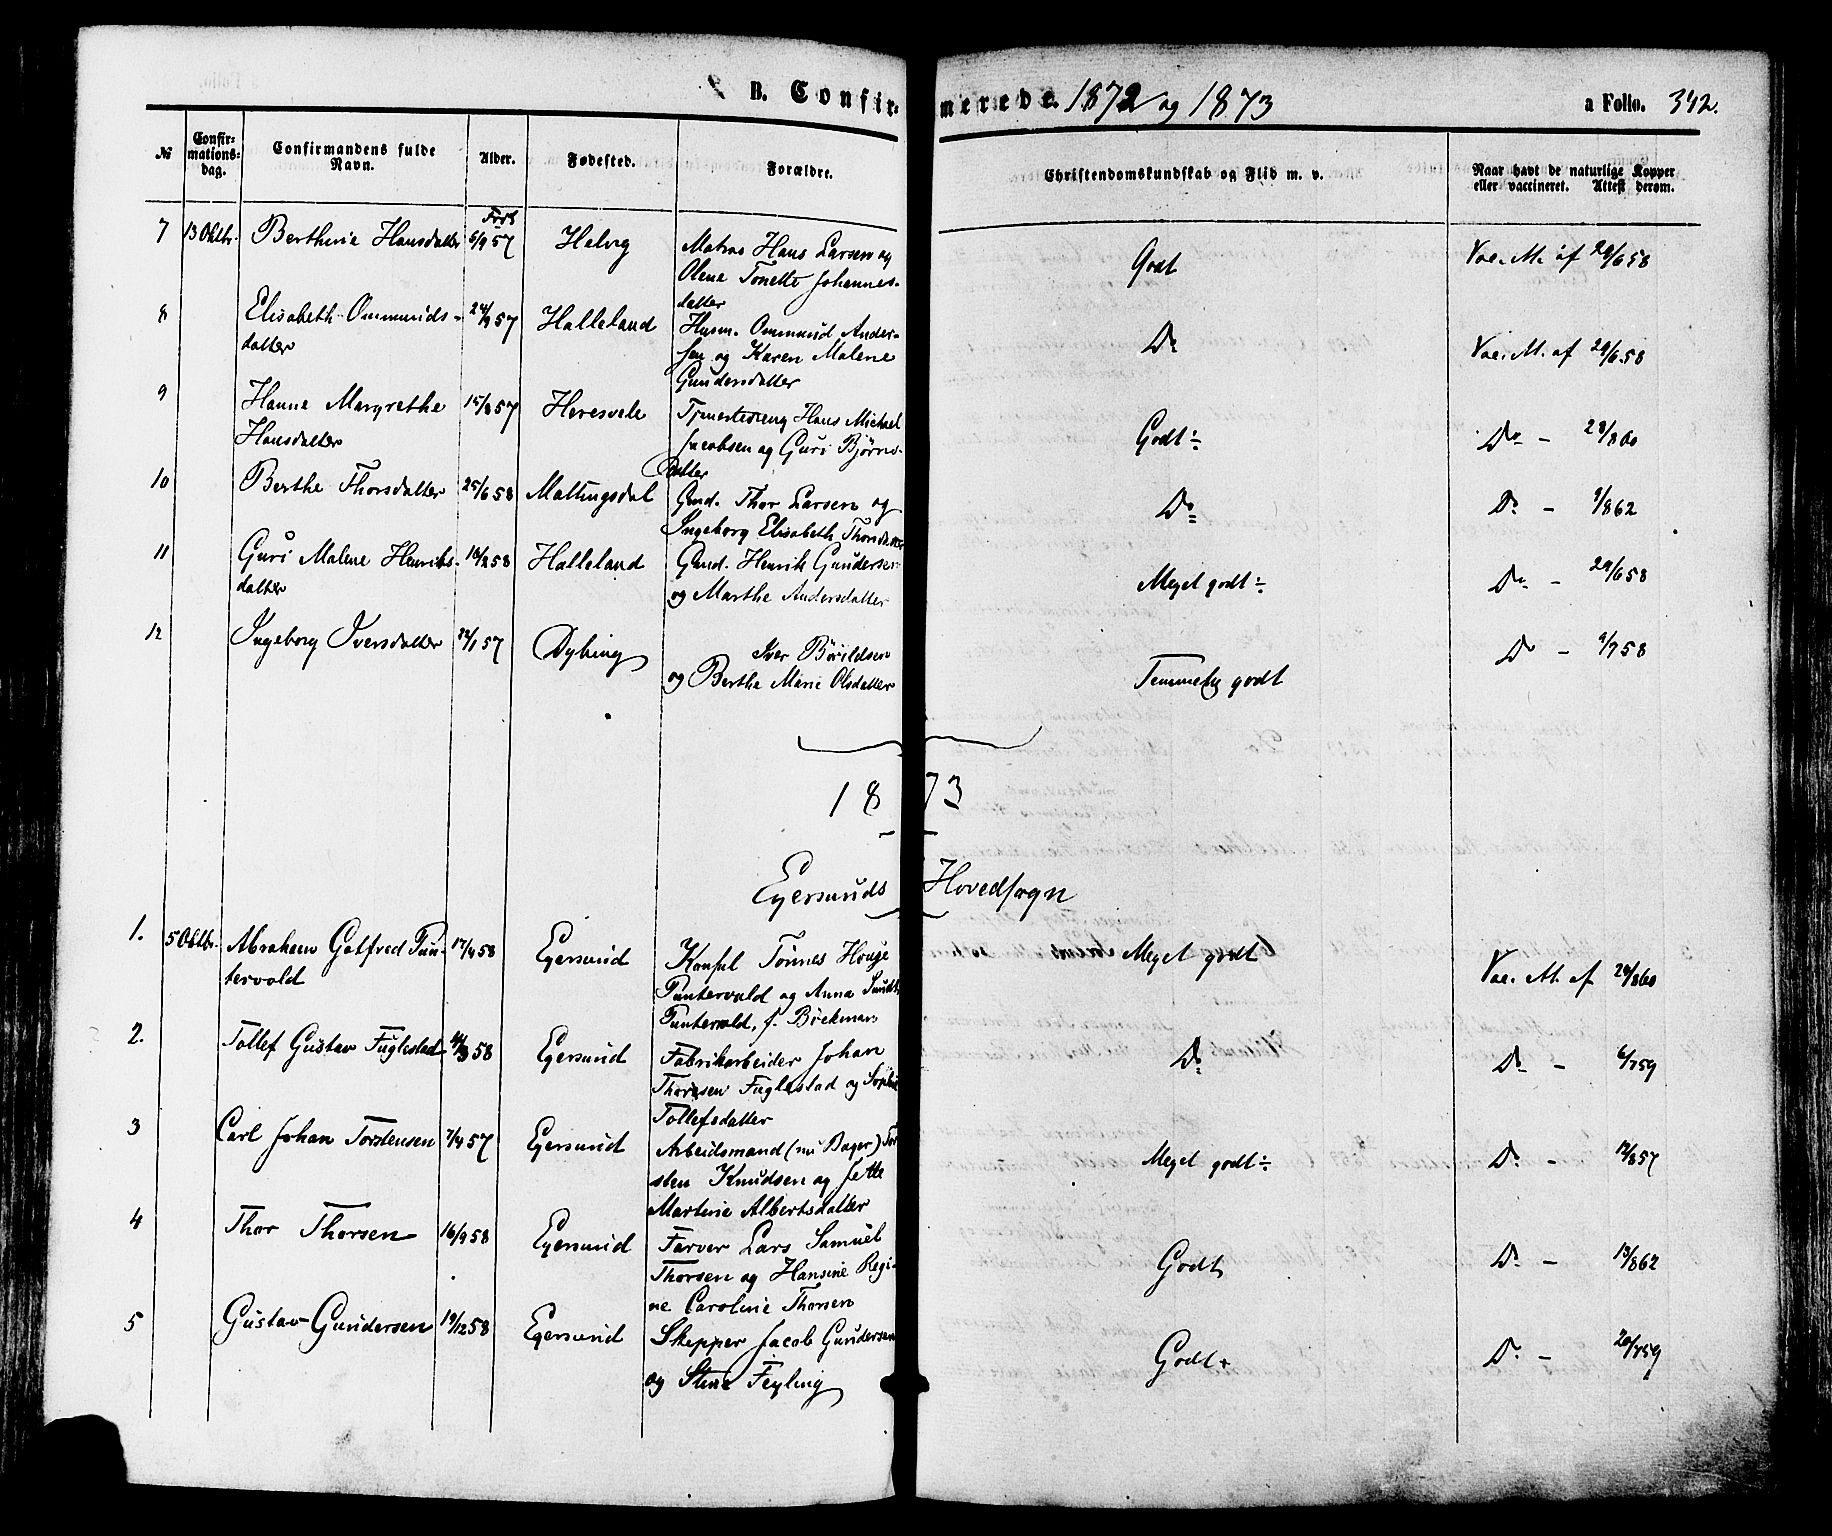 B. Confirmerede. 1872 og 1873
a Folio. 342.
№ Confirmationsdag. Confirmandens fulde Navn. Alder. Fødested. Forældre. Christendomskundskab og Flid m. v. Naar havt de naturlige Kopper eller vaccineret. Attest derom.
7 13 Oktbr. Berthine Hansdatter 6/9 57 Helvig Matros Hans Larsen og Godt Vac. A. af 29/6 58
Olene Tonette Johannes-
datter
8 Elisabeth Ommunds- 24/9 57 Halleland Husm. Ommund Ander- Do Vac. A. af 29/6 58
datter sen og Karen Malene
Gundersdatter
9 Hanne Margrethe 15/8 57 Heresvele Tjenestedreng Hans Michael Godt ÷ Do - 28/8 60
Hansdatter Jacobsen og Guri Bjørns-
datter
10 Berthe Thorsdatter 25/6 58 Mattingsdal Gmd. Thor Larsen og Do - 9/8 62
Ingeborg Elisabeth Thorsdatter
11 Guri Malene Henriks- 18/2 58 Halleland Gmd. Henrik Gundersen Meget godt ÷ Do - 29/6 58
datter og Marthe Andersdatter
12 Ingeborg Iversdatter 22/1 57 Dybing Iver Bårildsen Temmelig godt Do - 9/7 58
og Berthe Marie Olsdatter
1873
Egersunds Hovedsogn
1. 5 Oktbr. Abraham Gotfred Pun- 17/4 58 Egersund Konsul Tønnes Houge Meget godt Vac. A. af 29/8 60
tervold Puntervold og Anna Sundt
Puntervold, f. Bøckman
2. Tollef Gustav Fuglestad 58 Egersund Fabrikarbeider Johan Do Do - 6/7 59
Thorsen Fuglestad og
Tollefsdatter
3 Carl Johan Torstensen 7/4 57 Egersund Arbeidsmand (nu Bager) Tor Meget godt ÷ Do - 12/8 57
sten Knudsen og Jette
Martine Albertsdatter
4 Thor Thorsen 16/9 58 Egersund Farver Lars Samuel Godt Do - 13/8 62
Thorsen og Hansine Regi-
ne Caroline Thorsen
5 Gustav Gundersen 19/12 58 Egersund Skipper Jacob Gundersen Godt + Do - 20/7 59
og Stine Feyling